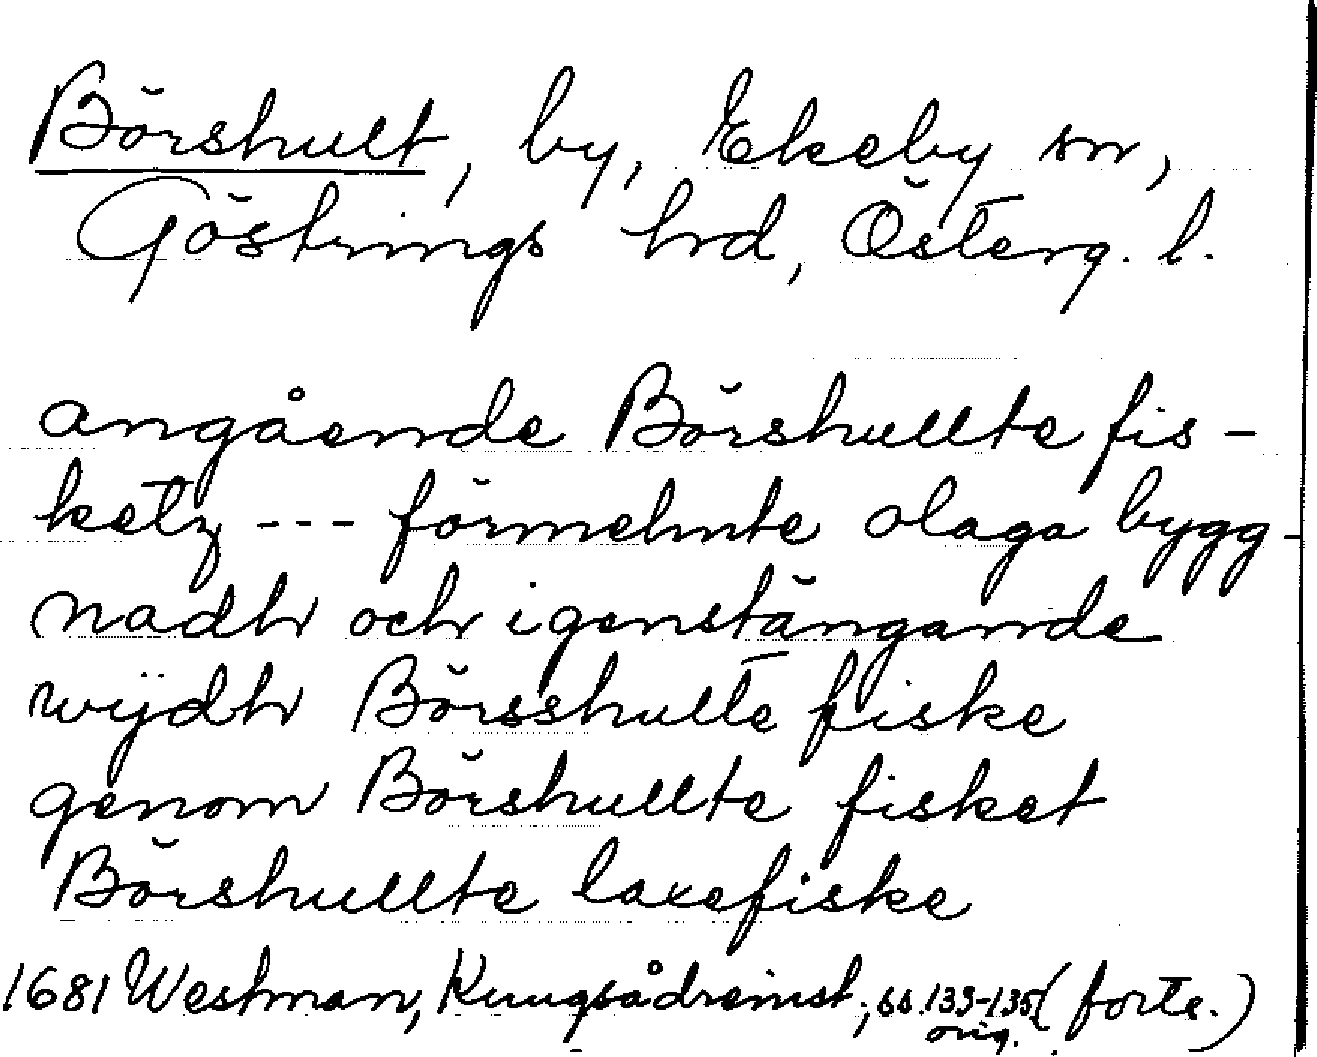 Börshult, by, Ekeby sn,
Göstrings hrd, Österg. l.
angående Börshullte fis-
ketz --- förmehnte olaga bygg-
nadh och igenstängande
wÿdh Börsshulte fiske
genom Börshullte fisket
Börshullte laxefiske
1681 Westman, Kungsådreinst, ss. 133-135 (forts.)
orig.